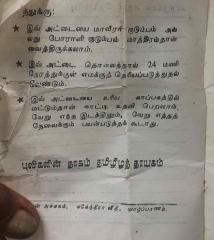 நத்துக்கு:
★ இவ் அட்டையை மாவீரர் குடும்பம் அல்
லது போராளி குடும்பம் மாத்திரம்தான்
வைத்திருக்கலாம்.
★ இவ் அட்டை தொலைந்தால் 24 மணி
நேரத்துக்குள் எமக்குத் தெரியப்படுத்துதல்
வேண்டும்.
★ இவ் அட்டையை உரிய காப்பகத்தில்
மட்டும்தான் காட்டி உதவி பெறலாம்,
வேறு எந்த இடத்திலும், வேறு எந்தத்
தேவைக்கும் பயன்படுத்தக் கூடாது.
புலிகளின் தாகம் தமிழீழத் தாயகம்
அச்சகம், மகேந்திரா வீதி, யாழ்ப்பாணம்.